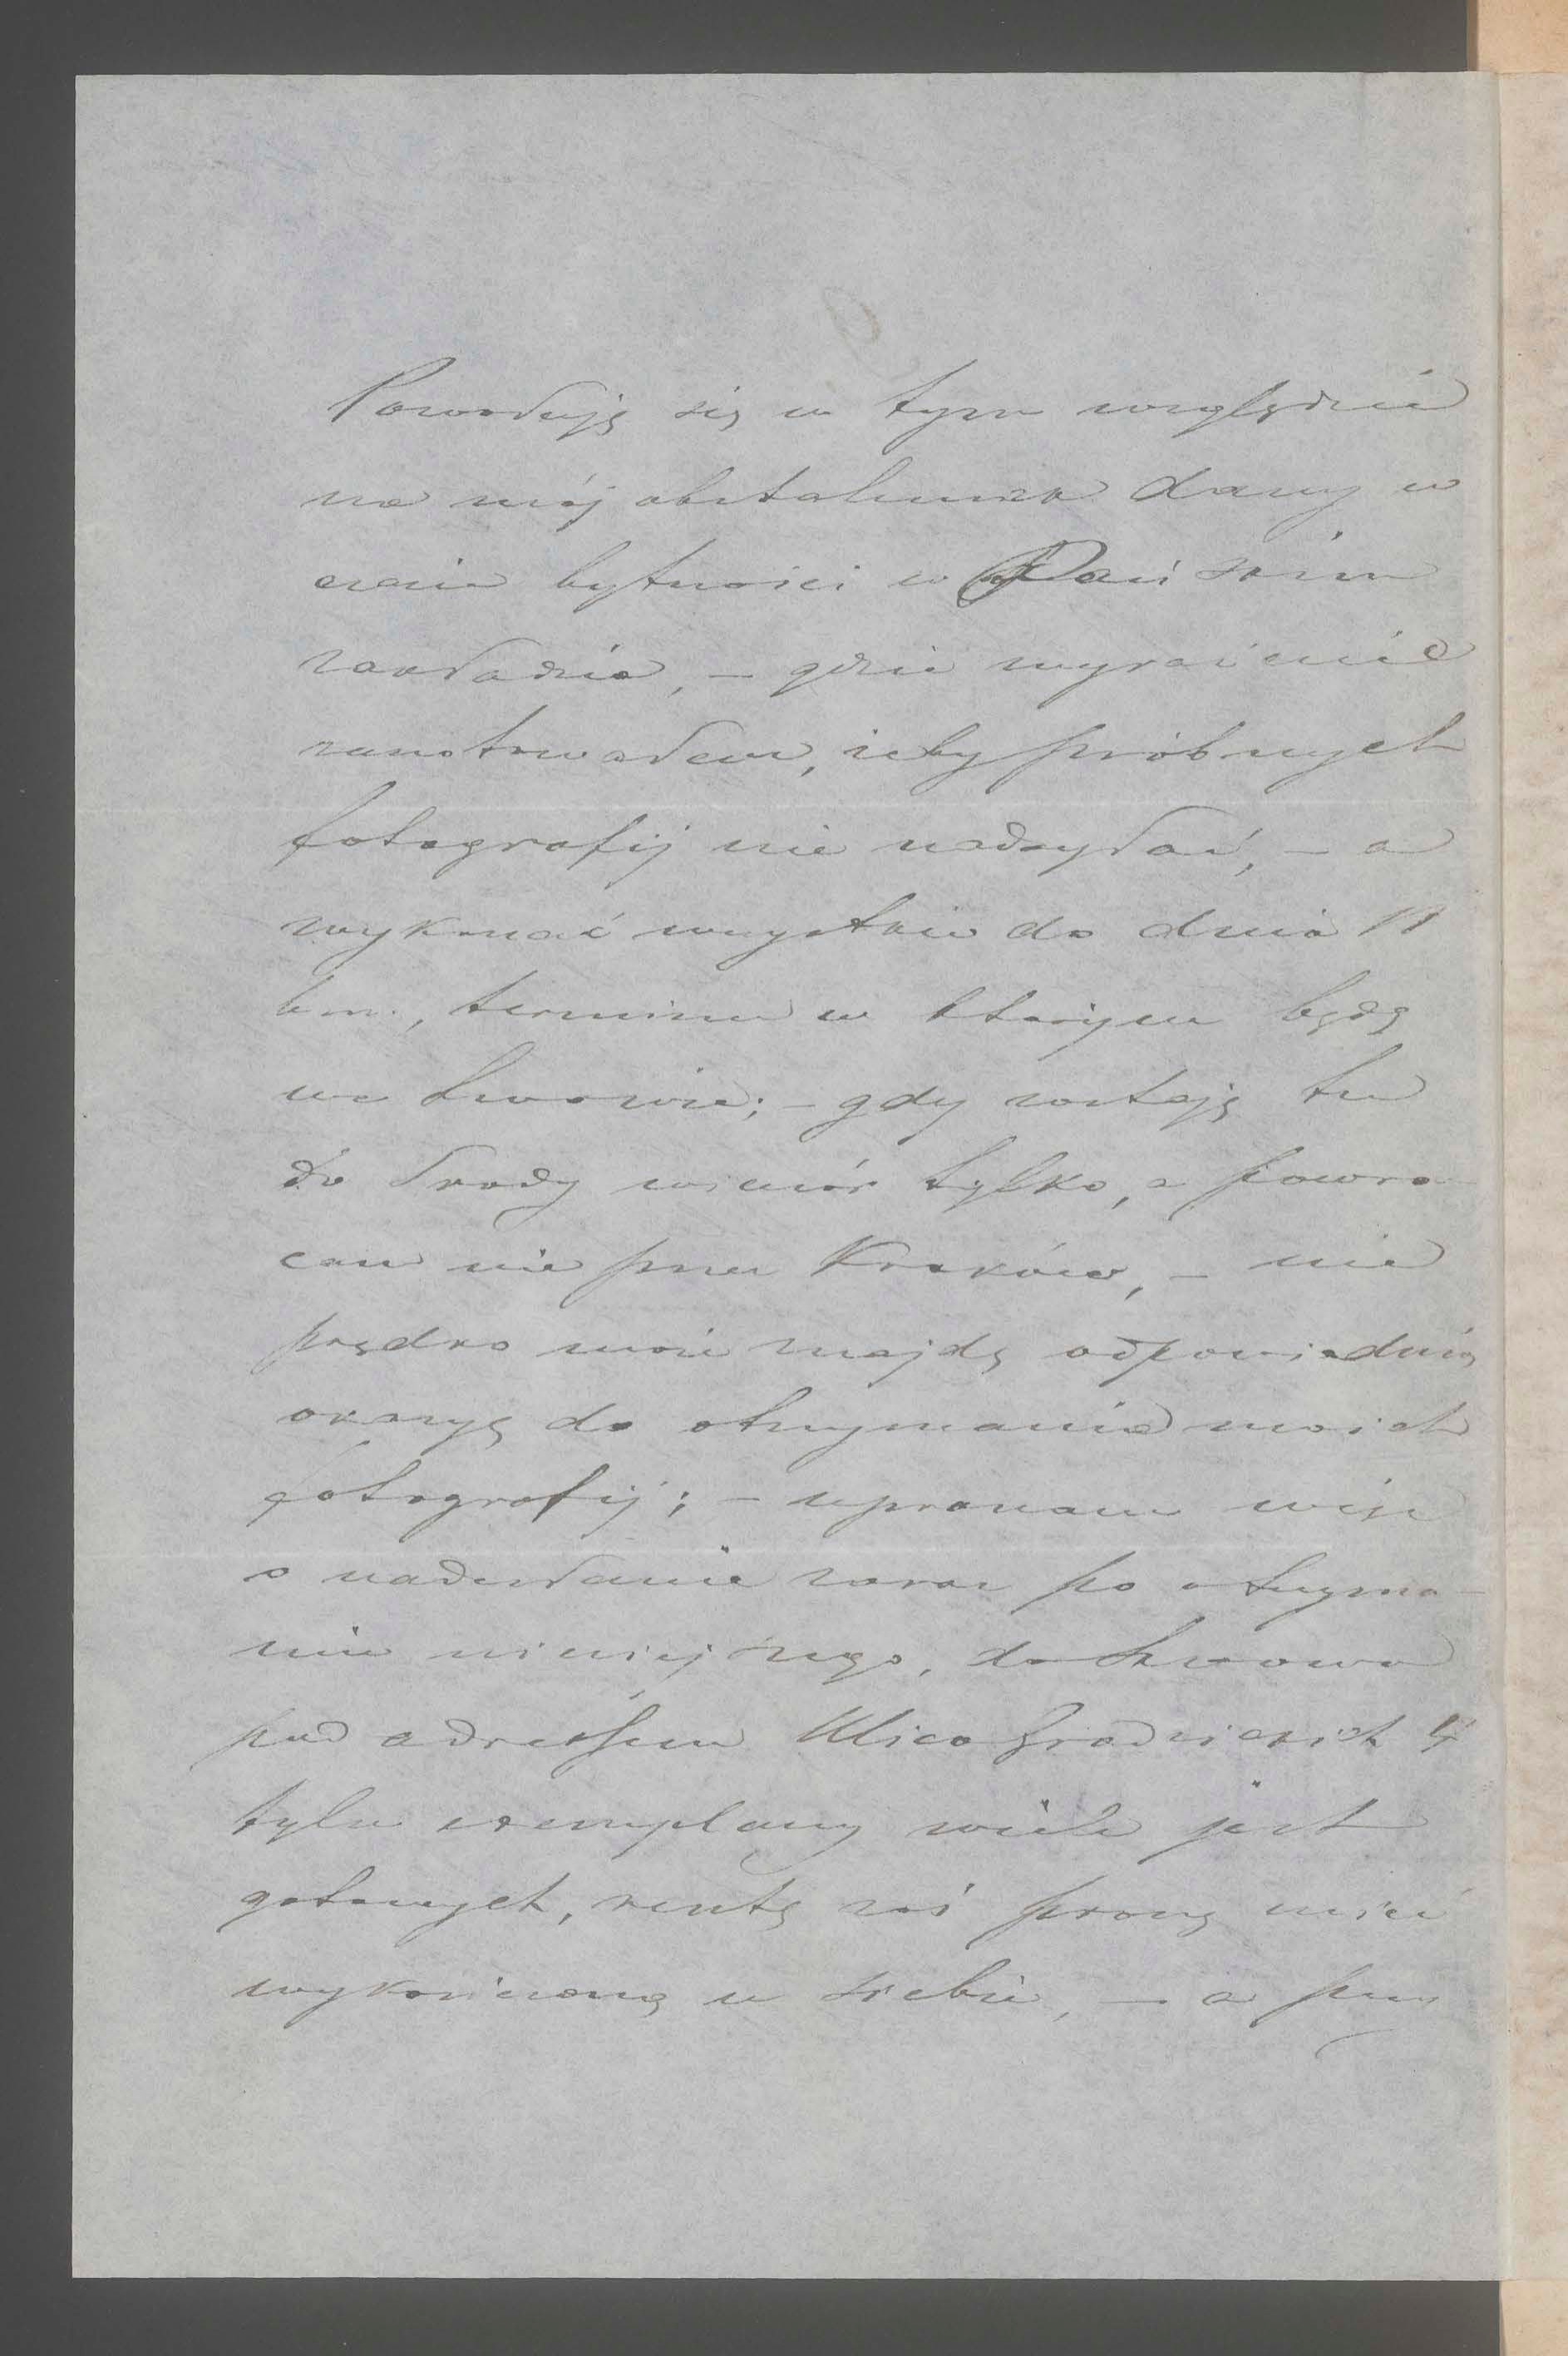 Powołuję się w tym względzie
na mój obstalunek dany w
czasie bytności w Pańskim
zakładzie, – gdzie wyraźnie
zanotowałem, żeby próbnych
fotografij nie nadsyłać, – a
wykonać wszystkie do dnia 11
b.m., terminu w którym będę
we Lwowie; – gdy zostaję tu
do Środy wieczór tylko, a powra-
cam nie przez Kraków, – nie
prędko może znajdę odpowiednią
okazyę do otrzymania moich
fotografij; – upraszam więc
o nadesłanie zaraz po otrzyma-
niu niniejszego, do Lwowa
pod adressem Ulica
tylu exemplarzy wiele jest
gotowych, resztę zaś proszę mieć
wykończoną u siebie, – a przy